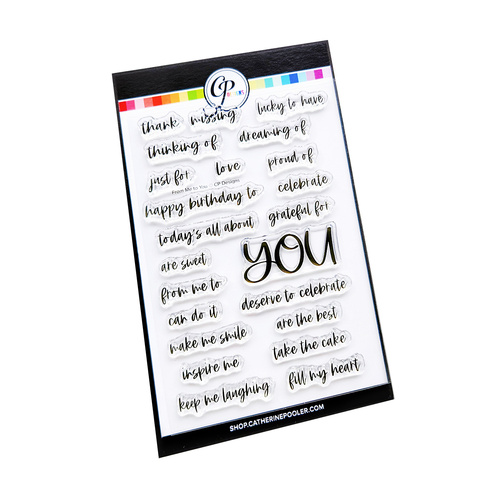 CP
thank
missing
lucky to have
thinking of
dreaming of
just for
love
proud of
From Me to You CP Designs
celebrate
happy birthday to
grateful for
today's all about
YOU
are sweet
from me to
deserve to celebrate
can do it
are the best
make me smile
take the cake
inspire me
fill my heart
keep me laughing
SHOP.CATHERINEPOOLER.COM